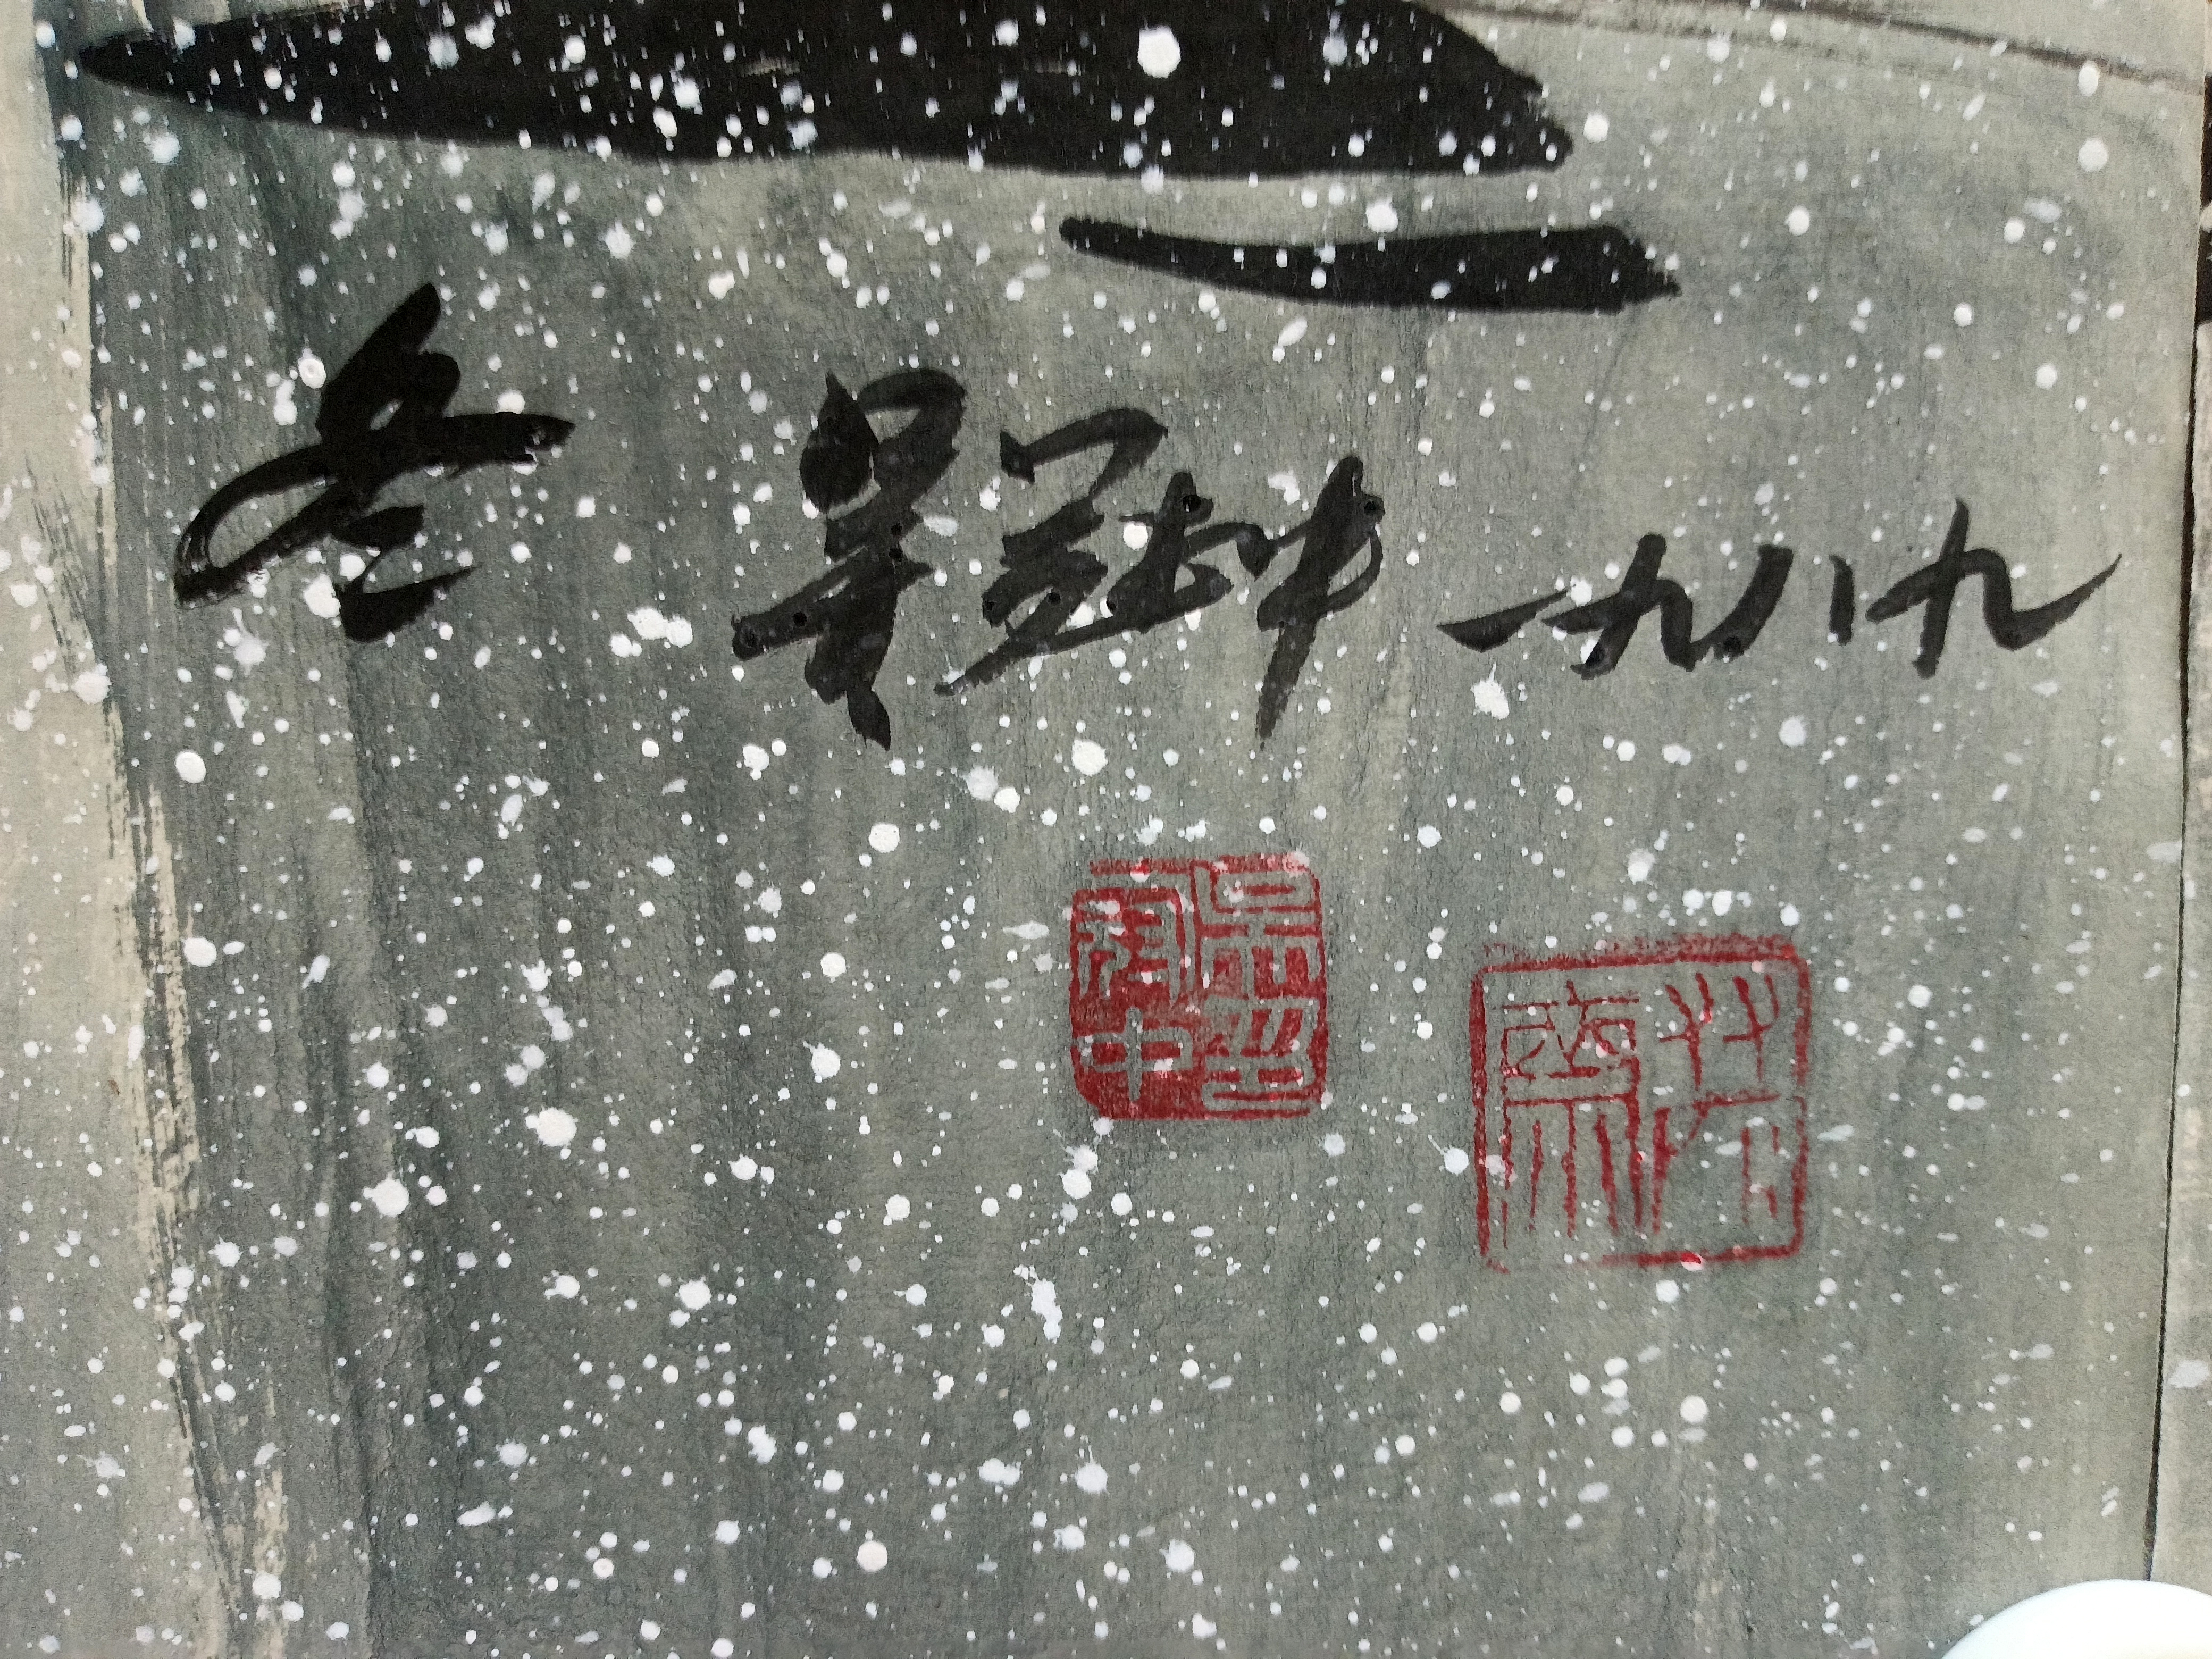 冬 吴冠中 一九八九
吴冠中印
荼